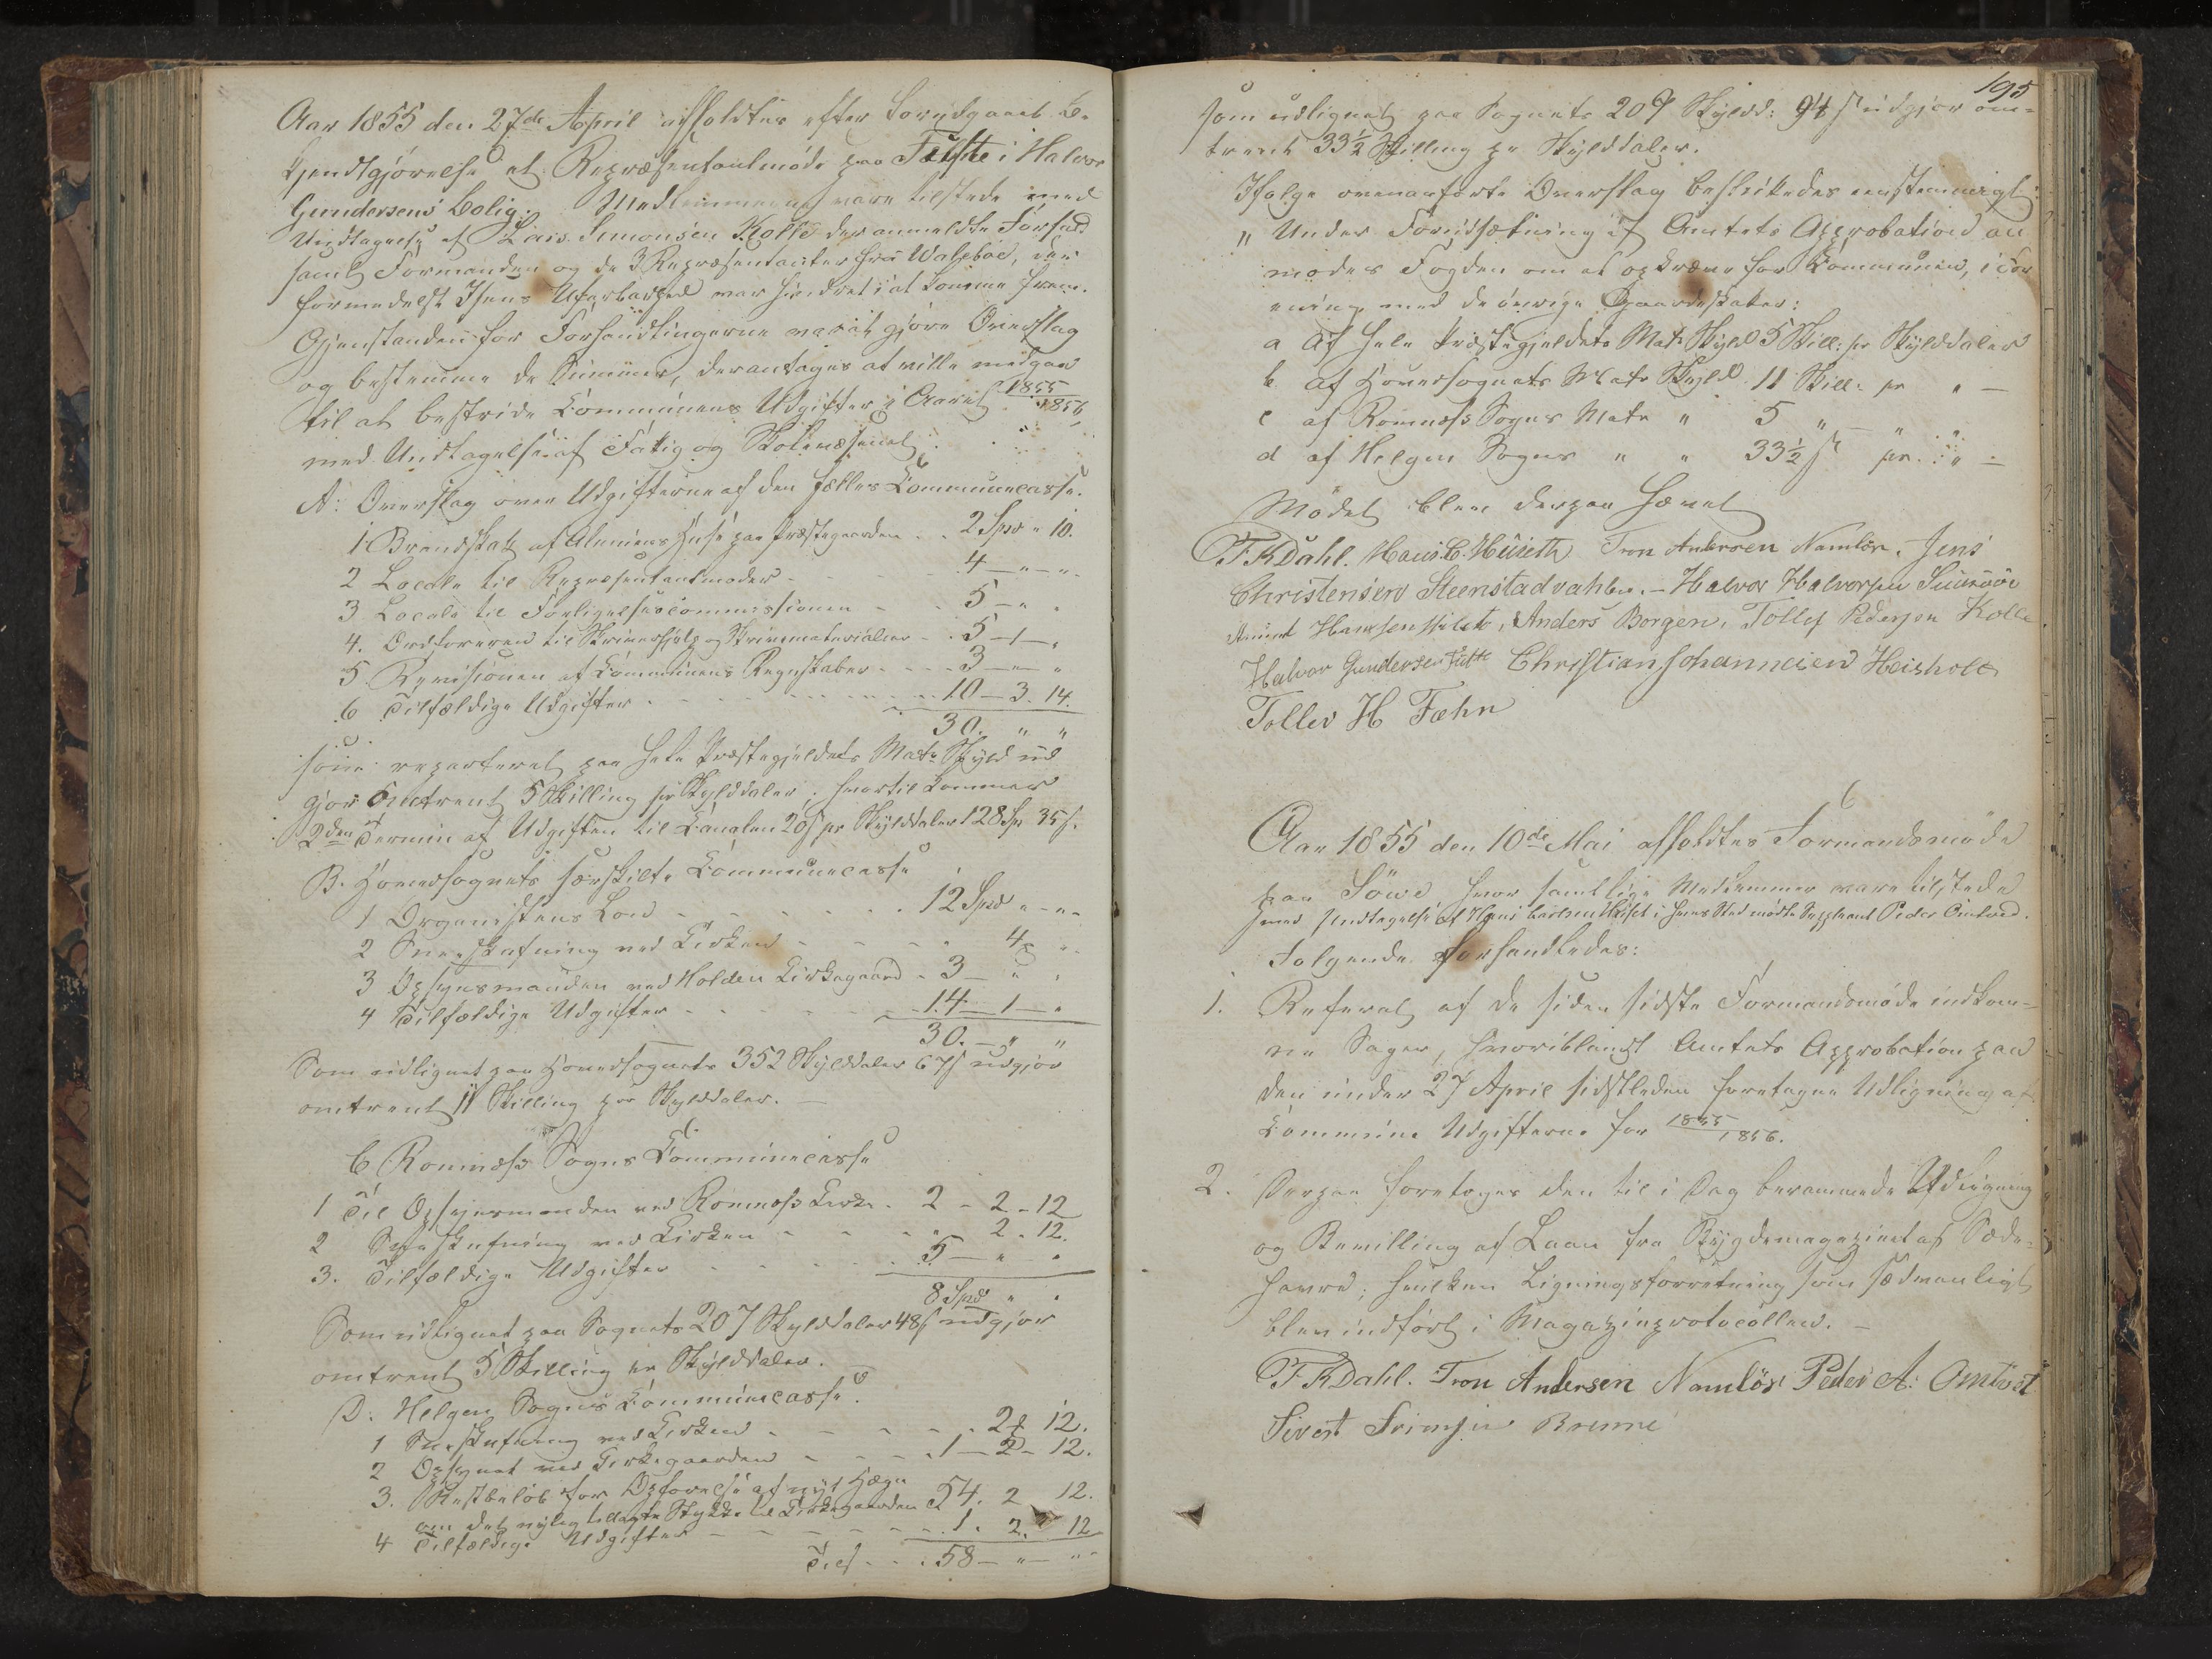 Aar 1855 den 27de April afholdtes efter forudgaaet Be-
kjendtgjørelse et Repræsentantmøde paa Tufte i Halvor
Gundersens Bolig. Medlemmerne vare tilstede med
Undtagelse af Lars Simonsen Kolle der anmeldte Forfald
samt Formanden og de 3 Repræsentanter fra Valebøe, der
formedelst Isens Ufarbarhed var hindret i at komme frem.
Gjenstanden for Forhandlingerne var at gjøre Overslag
og bestemme de Summer, der antages at ville medgaae
til at bestride Communens Udgifter i Aaret 1855/1856
med Undtagelse af Fattig og Skolevæsenet
A: Overslag over Udgifterne af den fælles Communecasse.
1 Brandskat af Alminds Huse paa Præstegaarden . . 2 Spd " 10.
2 Locale til Repræsentantmøder - - - - 4 — " — "
3 Locale til Forligelsescommissionen - - 5 — " "
4. Ordføreren til Skriverhjelp og Skrivematerialier - . 5 — 1 — "
5 Revisionen af Communens Regnskaber - - - - 3 — " — "
6 Tilfældige Udgifter - - - - - - 10 — 3. 14.
30. " "
som reparteret paa hele Præstegjeldets Matr Skyld ud
gjør omtrent 5 Skilling pr Skylddaler; hvortil kommer
2den Termin af Udgiften til Canalen 20 s pr Skylddaler 128 Sp 35 s.
B. Hovedsognets særskilte Communecasse
1 Organistens Løn - - - - - - 12 Spd " - " -
2 Sneeskufning ved Kirken - - - - " 4 "
3 Opsynsmanden ved Holden Kirkegaard - 3 — " "
4 Tilfældige Udgifter - - - - - 14 — 1 — "
30. — " "
Som udlignet paa Hovedsognets 352 Skylddaler 67 s udgjør
omtrent 11 Skilling per Skylddaler. —
C Romnæss Sogns Communecasse
1 Til Opsynsmanden ved Romnæss Kirke. 2 - 2 - 12
2 Sneeskufning ved Kirken - - - " 2 - 12.
3. Tilfældige Udgifter - - - - - 5 — " "
8 Spd " "
Som udlignet paa Sognets 207 Skylddaler 48 s udgjør
omtrent 5 Skilling pr Skylddaler.
D: Helgen Sogns Communecasse.
1 Sneeskufning ved Kirken - - - - 2 12.
2 Opsynet ved Kirkegaarden - - - . 1 — 2 - 12.
3. Restbeløb for Opførelse af nyt Hegn
om det nylig tillagte Stykke til Kirkegaarden 54. 2 12.
4 Tilfældige Udgifter - - - - - - 1. 2. 12
Tils - - : 58 — " — " -
195
som udlignet paa Sognets 207 Skyldd: 94 s udgjør om-
trent 33 1/2 Skilling pr Skylddaler.
Ifølge ovenanførte Overslag besluttedes eenstemmigt:
" Under Forudsætning af Amtets Approbation an
modes Fogden om at opkræve for Communen, i For
ening med de øvrige Gaardskatter:
a Af hele Præstegjeldets Matr Skyld 5 Skill: pr Skylddaler
b. af Hovedsognets Matr Skyld 11 Skill: pr " —
c af Romnæss Sogns Matr " 5 " " "
d af Helgen Sogns " " 33 1/2 s pr. " —
Mødet blev derpaa hævet
F. K Dahl. Hans C. Huseth Tron Andersen Namløs. Jens
Christensen Steenstad vahlen. - Halvor Halvorsen
Hansen, Anders Borgen, Tollef Pedersen Kolle
Halvor Gundersen Tufte Christian Johannesen Heisholt
Tollev H Fæhn
Aar 1855 den 10de Mai afholdtes Formandsmøde
paa Søve hvor samtlige Medlemmer vare tilstede
med Undtagelse af Hans Carlsen Huset i hvis Sted mødte Suppleant Peder Omtved.
Følgende forhandledes:
1. Referat af de siden sidste Formandsmøde indkom-
ne Sager, hvoriblandt Amtets Approbation paa
den under 27 April sidstleden foretagne Udligning af
Commune Udgifterne for 1855/1856.
2. Derpaa foretoges den til i Dag berammede Udligning
og Bevilling af Laan fra Bygdemagazinet af Sæde-
havre; hvilken Ligningsforretning som sædvanligt
blev indført i Magazinprotocollen. -
F K Dahl. Tron Andersen Namløs Peder A: Omtvet
Sivert Brenne